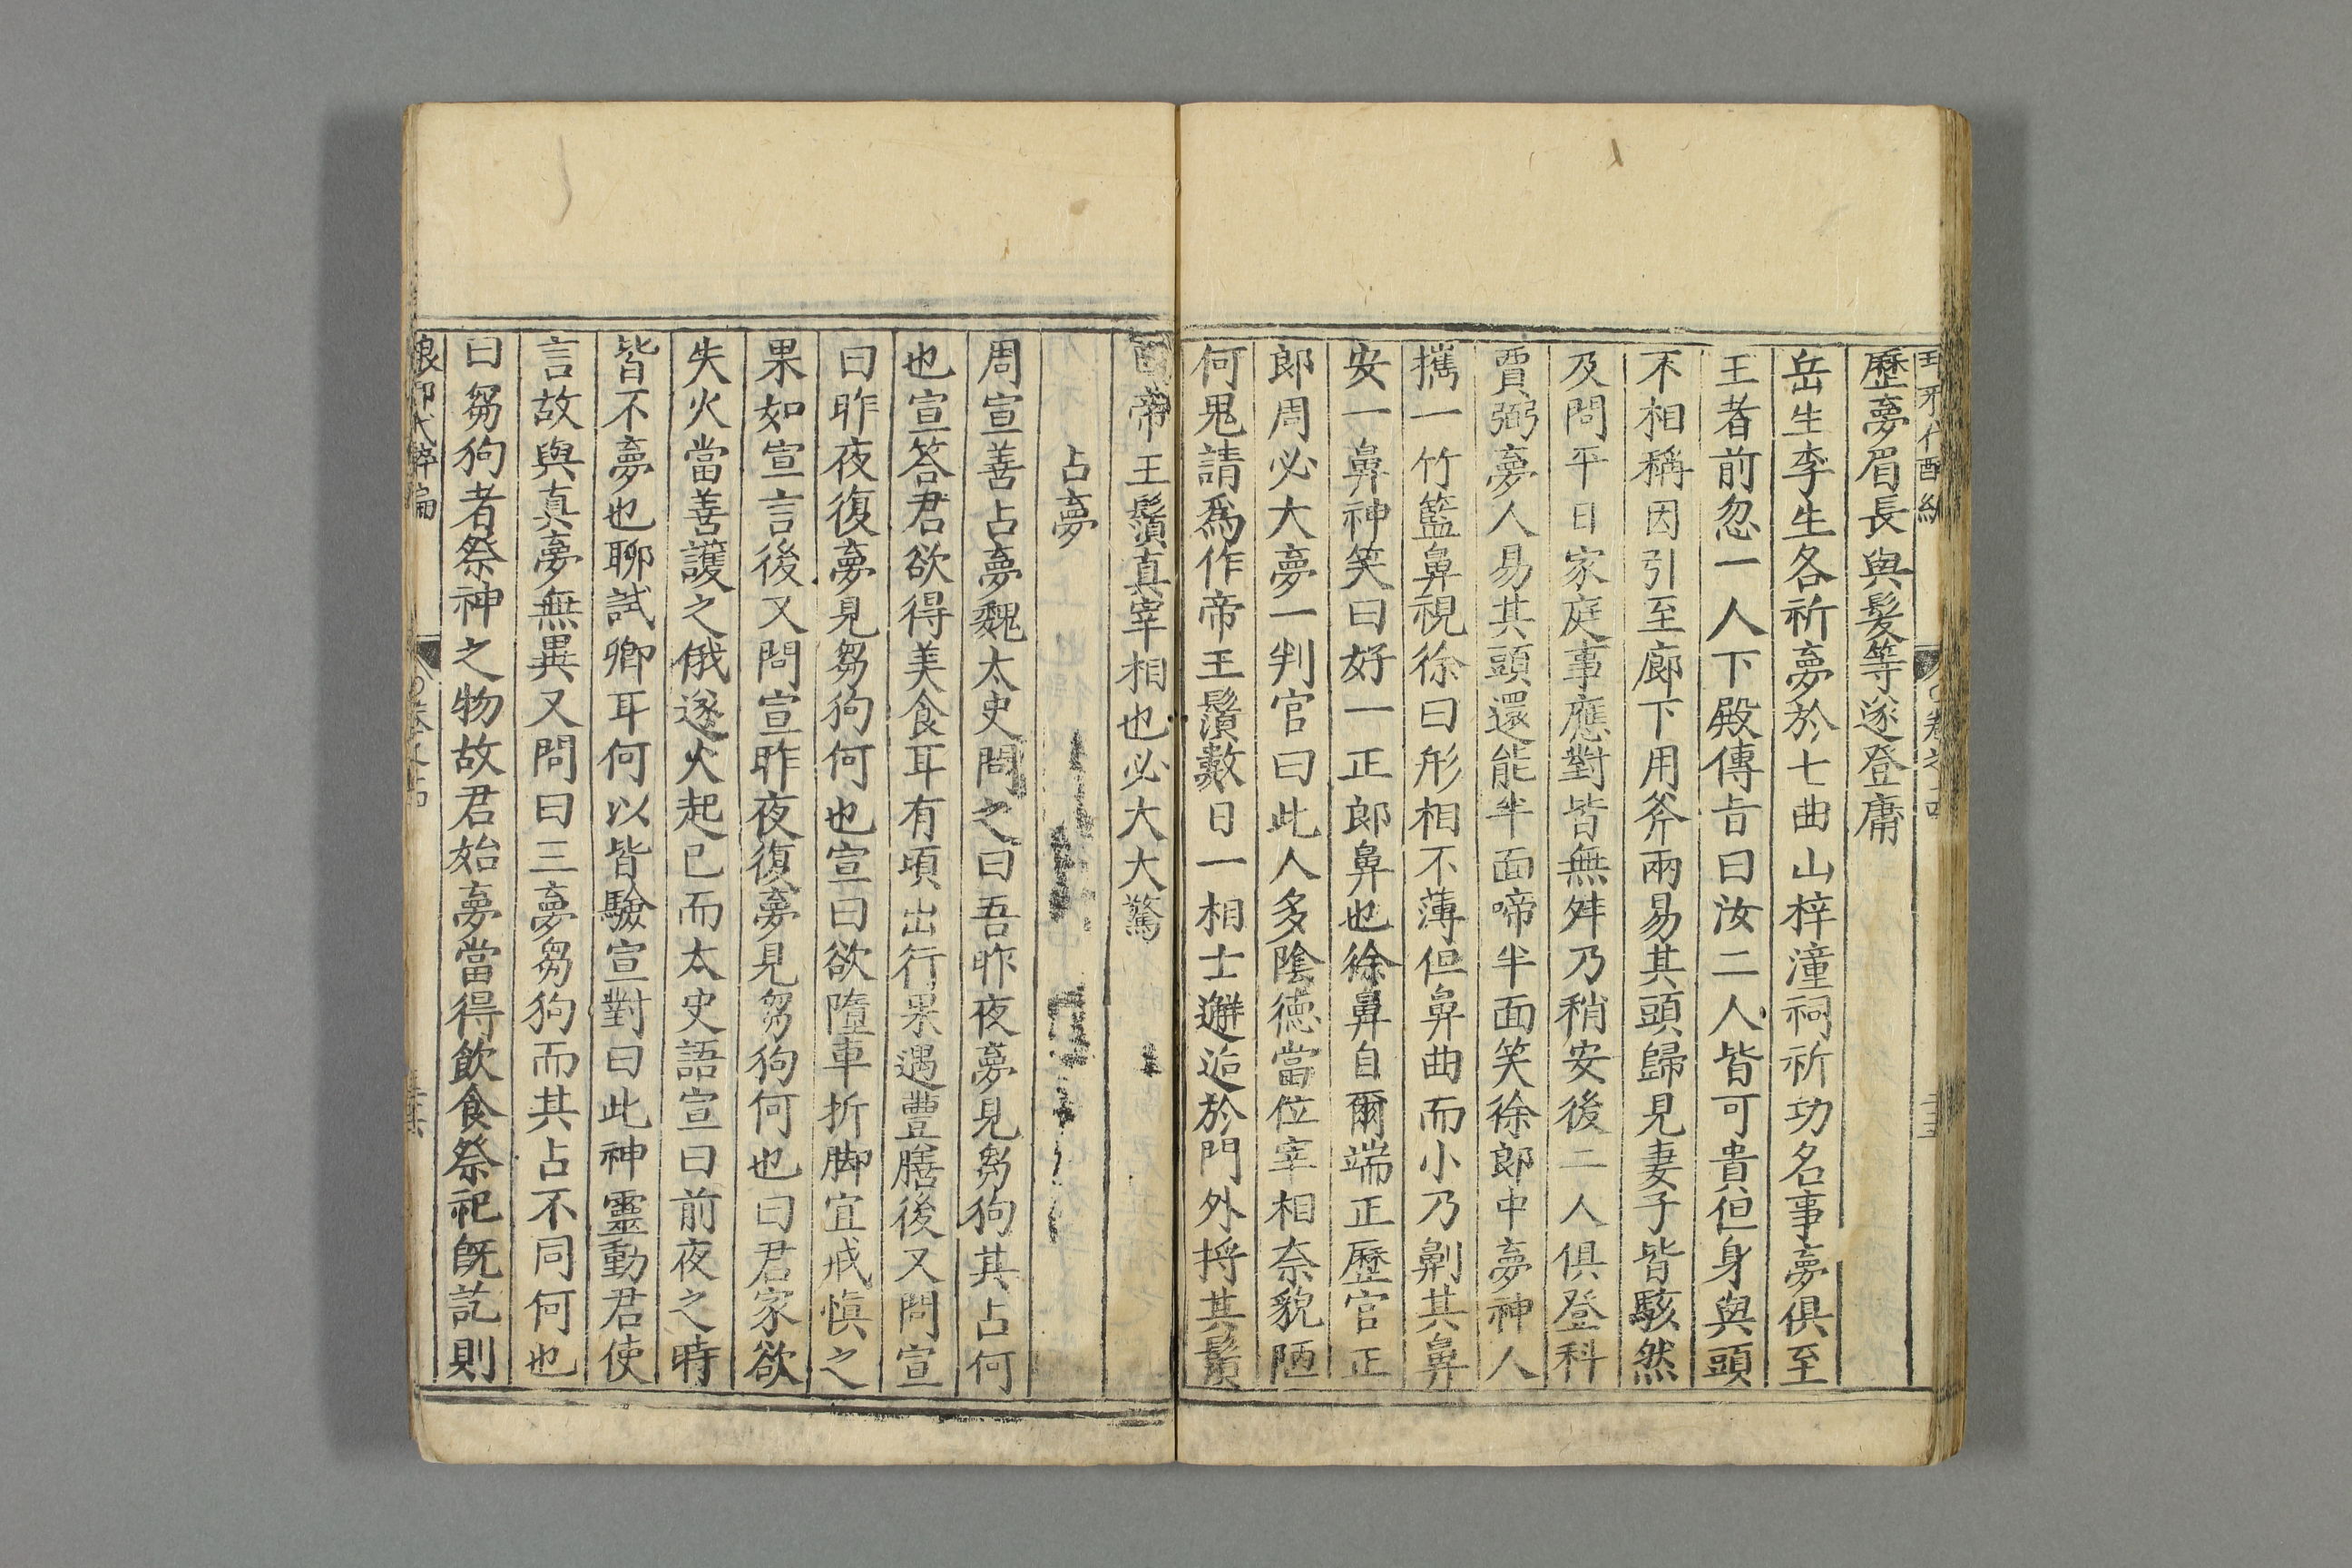 歷夢眉長與髮等遂登庸
岳生李生各祈夢於七曲山梓潼祠祈功名事夢俱至
王者前忽一人下殿傳旨曰汝二人皆可貴但身與頭
不相稱因引至廊下用斧兩易其頭歸見妻子皆駭然
及問平日家庭事應對皆無舛乃稍安後二人俱登科
賈弼夢人易其頭還能半面啼半面笑徐郎中夢神人
攜一竹籃鼻視徐曰形相不薄但鼻曲而小乃劓其鼻
安一鼻神笑曰好一正郎鼻也徐鼻自爾端正歷官正
郎周必大夢一判官曰此人多陰德當位宰相奈貌陋
何鬼請為作帝王鬚數日一相士邂逅於門外捋其鬚
曰帝王鬚真宰相也必大大驚
占夢
周宣善占夢魏太史問之曰吾昨夜夢見芻狗其占何
也宣答君欲得美食耳有頃出行果遇豐膳後又問宣
曰昨夜復夢見芻狗何也宣曰欲墮車折脚宜戒慎之
果如宣言後又問宣昨夜復夢見芻狗何也曰君家欲
失火當善護之俄遂火起已而太史語宣曰前夜之時
皆不夢也聊試卿耳何以皆驗宣對曰此神靈動君使
言故與真夢無異又問曰三夢芻狗而其占不同何也
曰芻狗者祭神之物故君始夢當得飲食祭祀既訖則